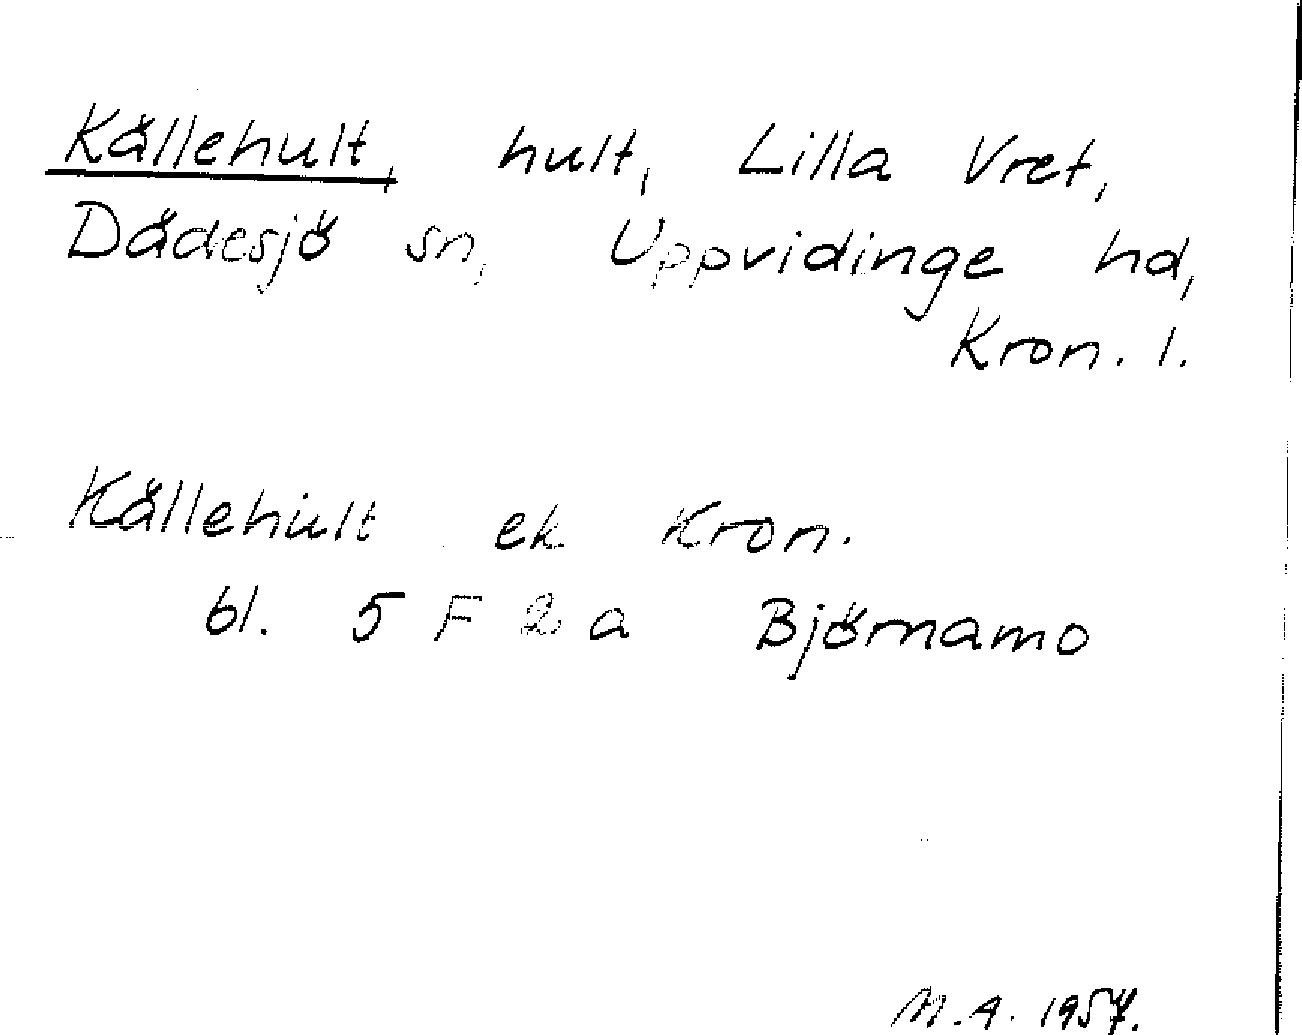 Källehult, hult, Lilla Vret,
Dädesjö sn, Uppvidinge hd,
Kron. l.
Källehult ek Kron.
bl. 5 F 2 a Björnamo
M.A. 1957.